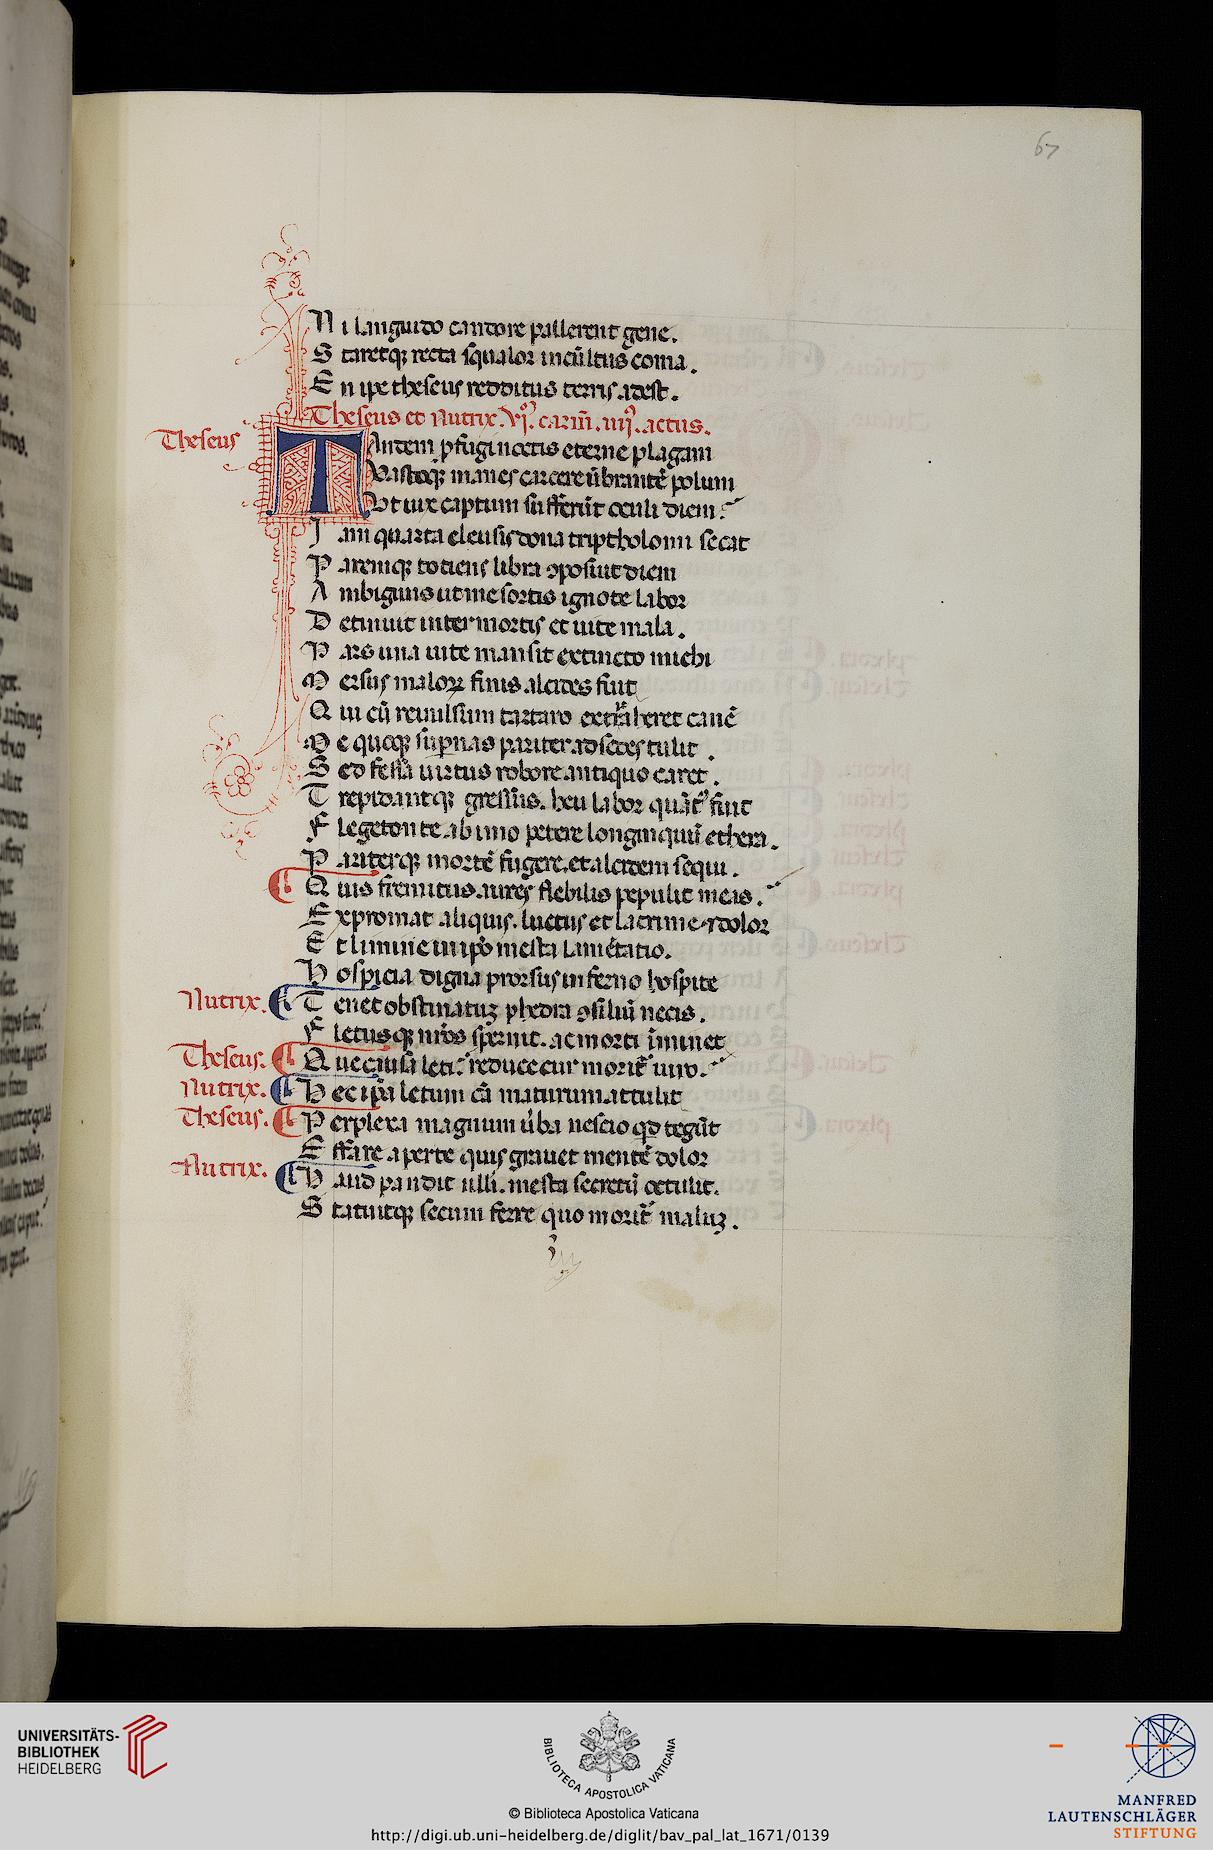 67
N i languido candore pallerent gene.
S taretq; recta squalor incultus coma.
E n ipse theseus redditus terris adest.
Theseus et Nutrix. vjº. carm̄. iiijº. actus.
Theseus
T Andem pfugi noctis eterne plagam
Vastoq; manes carcere ūbrantē polum
Vt uix captum sufferūt oculi diem.
J am quarta eleusis dona triptholomi secat
P aremq; totiens libra ꝯposuit diem
A mbiguus ut me sortis ignote labor
D etinuit inter mortis et uite mala.
P ars una uite mansit extincto michi
M ersus maloꝝ finis alcides fuit
Q ui cū reuulsum tartaro extraheret canē
M e quoq; supernas pariter ad sedes tulit.
S ed fessa uirtus robore antiquo caret.
T repidantq; gressus. heu labor quāt' fuit
F legetonte ab imo petere longinquū ethera.
P ariterq; mortē fugere. et alcidem sequi.
Q uis fremitus aures flebilis pepulit meas.
E xpromat aliquis. luctus et lacrime ⁊ dolor
E t limine in ipō mesta lamētatio.
H ospicia digna prorsus inferno hospite
Nutrix. T enet obstinatuꝫ phedra ꝯsiliū necis.
F letusq; nrōs spernit. ac morti iminet
Theseus. Q ue causa leti. reduce cur morit' uiro.
Nutrix. H ec ipsa letum cā maturum attulit
Theseus. P erplexa magnum ūba nescio qd tegūt
E ffare aperte quis grauet mentē dolor
Nutrix. H aud pandit ulli. mesta secretū occulit.
S tatuitq; secum ferre quo morit' maluꝫ.
UNIVERSITÄTS-
BIBLIOTHEK
HEIDELBERG
BIBLIOTECA APOSTOLICA VATICANA
© Biblioteca Apostolica Vaticana
http://digi.ub.uni-heidelberg.de/diglit/bav_pal_lat_1671/0139
MANFRED
LAUTENSCHLÄGER
STIFTUNG